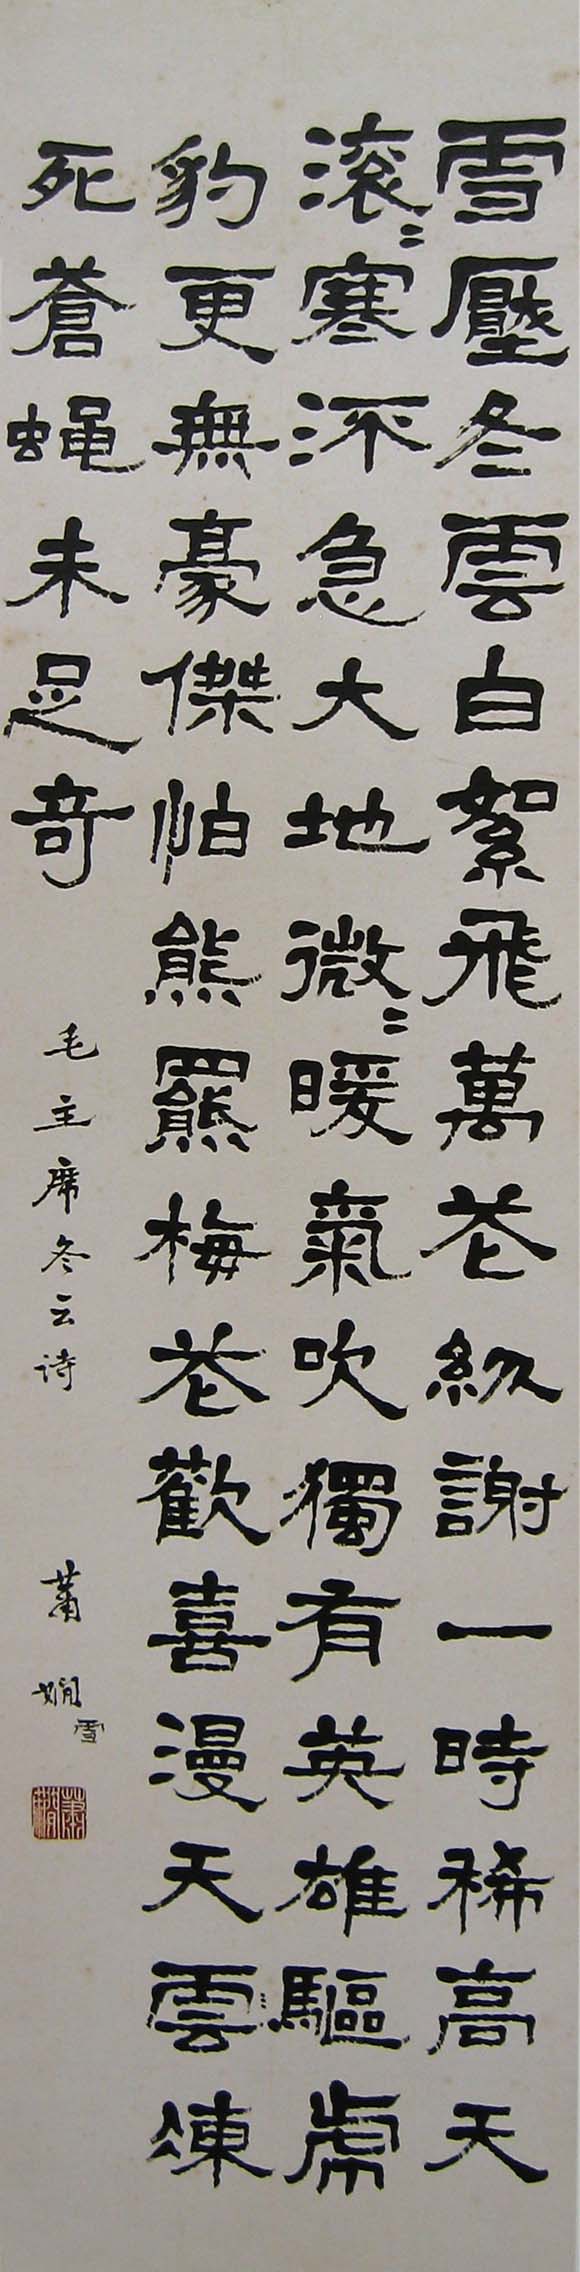 雪壓冬雲白絮飛萬花紛謝一時稀高天
滚〻寒流急大地微〻暖氣吹獨有英雄驅虎
豹更無豪傑怕熊羆梅花歡喜漫天雲凍
死蒼蝇未足奇
毛主席冬云诗
蕭嫻
雪
蕭嫻